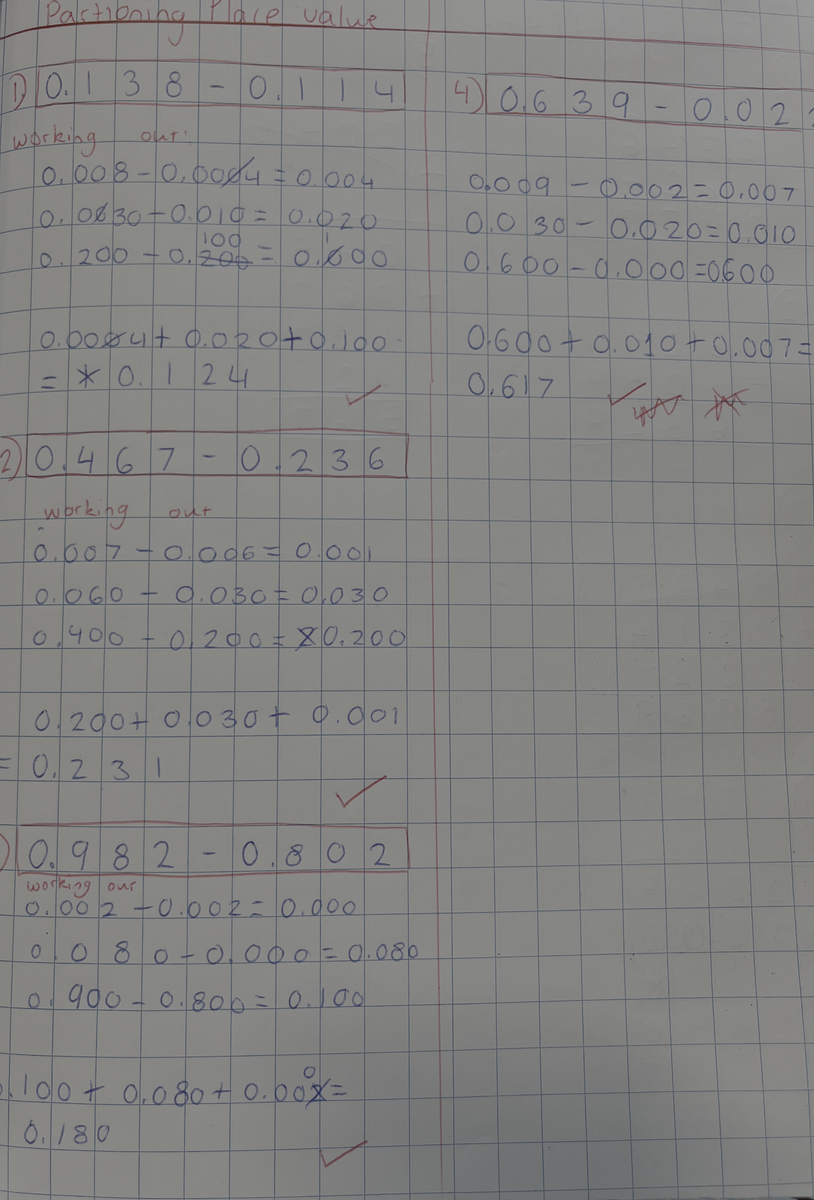 Partioning Place value
1) 0.138 - 0.114
working out:
0.008 - 0.004 = 0.004
0.030 - 0.010 = 0.020
0.200 - 0.100 = 0.100
0.004 + 0.020 + 0.100
= 0.124
2) 0.467 - 0.236
working out
0.007 - 0.006 = 0.001
0.060 - 0.030 = 0.030
0.400 - 0.200 = 0.200
0.200 + 0.030 + 0.001
= 0.231
) 0.982 - 0.802
working out
0.002 - 0.002 = 0.000
0.080 - 0.000 = 0.080
0.900 - 0.800 = 0.100
.100 + 0.080 + 0.000 =
0.180
4) 0.639 - 0.02
0.009 - 0.002 = 0.007
0.030 - 0.020 = 0.010
0.600 - 0.000 = 0600
0.600 + 0.010 + 0.007 =
0.617